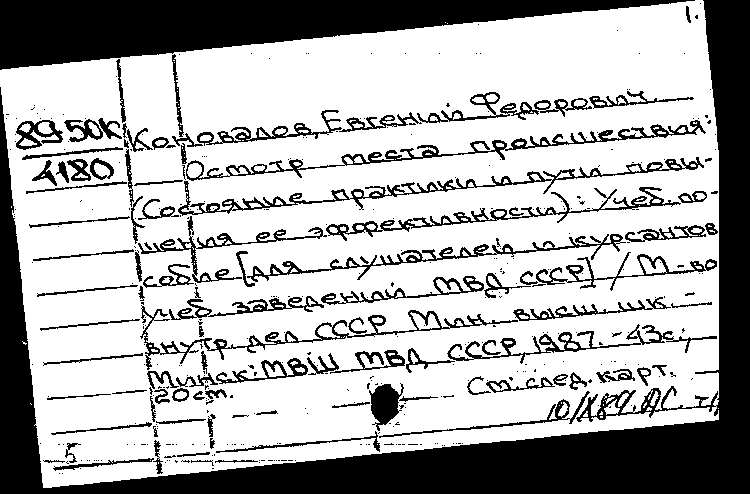 1.
89.50К
4180
Коновалов, Евгений Федорович.
Осмотр места происшествия:
(Состояние практики и пути повы-
шения ее эффективности): Учеб. по-
собие [для слушателей и курсантов
учеб. заведений МВД СССР] / М-во
внутр. дел СССР, Мин. высш. шк. -
Минск: МВШ МВД СССР, 1987. - 43с.;
20 см.
См. след. карт.
5